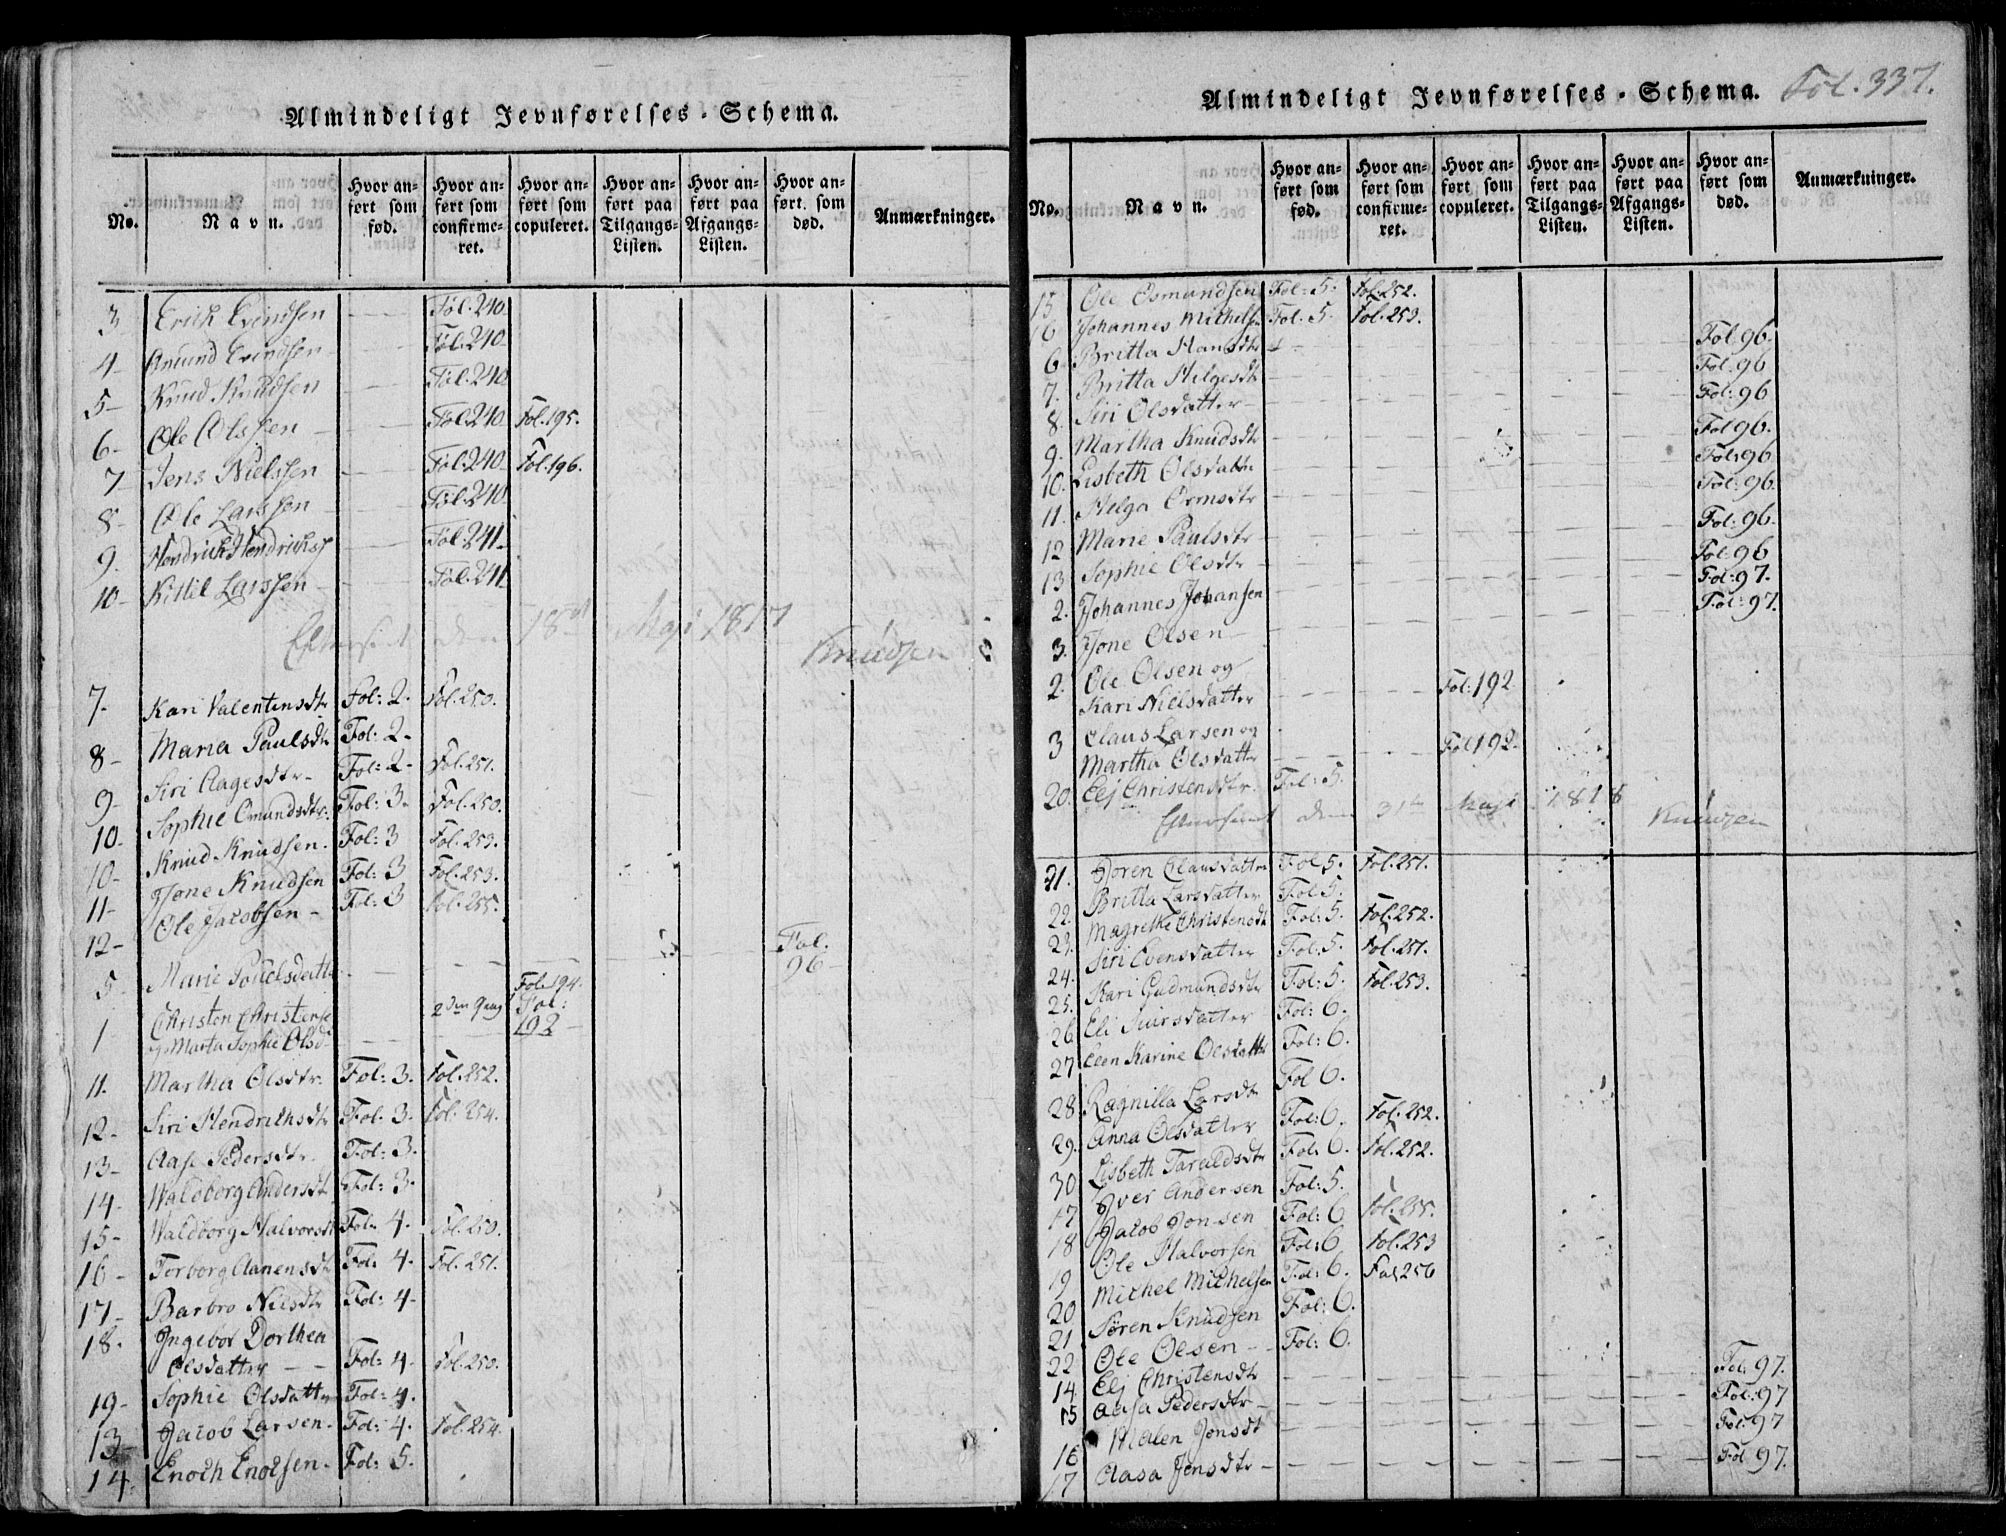 Almindeligt Jevnførelses-Schema.
No. Navn. Hvor anført som fød. Hvor anført som confirmeret. Hvor anført som copuleret. Hvor anført paa Tilgangs-Listen. Hvor anført paa Afgangs-Listen. Hvor anført som død. Anmærkninger.
3 Erich Evindsen Fol. 240
4 Amund Evindsen Fol. 240
5 Knud Knudsen Fol. 240
6 Ole Olssen Fol. 240 Fol. 195.
7 Jens Nielssen Fol. 240 Fol. 196.
8 Ole Larssen Fol. 240
9. Hendrick Hendrichs Fol. 241
10 Kittil Larssen Fol. 241
Efterseet den 18de Maji 1817 Knudsen
7. Kari Valentinsdtr Fol: 2. Fol. 250.
8 Maria Paulsdtr Fol: 2
9 Siri Aagesdtr Fol: 2 Fol. 251.
10. Sophie Omundsdtr Fol: 3. Fol. 250.
10 Knud Knudsen Fol: 3 Fol. 253.
11 Jone Knudsen Fol: 3 Fol. 253.
12 Ole Jacobsen Fol: 3 Fol. 255.
5 Marie Poulsdatter Fol. 96
Fol. 194.
1 Christen Christense 2den Gang Fol: 192
og Marta Sophie Olsd
11. Martha Olsdtr. Fol: 3. Fol. 252.
12 Siri Hendrichsdtr Fol: 3. Fol. 254.
13 Aase Pedersdtr Fol: 3.
14 Waldborg Andersdt Fol: 3.
15 Waldborg Halvorsdt Fol. 4. Fol. 250.
16 Torborg Aanensdt Fol: 4. Fol. 251.
17 Barbro Nilsdtr Fol: 4
18. Ingebor Dorthea
Olsdatter Fol: 4 Fol. 250.
19 Sophie Olsdatter Fol: 4.
13 Jacob Larsen Fol: 4. Fol. 254.
14. Enoch Enocsen Fol: 5.
Almindeligt Jevnførelses-Schema. Fol. 337.
No. Navn. Hvor anført som fød. Hvor anført som confirmeret. Hvor anført som copuleret. Hvor anført paa Tilgangs-Listen. Hvor anført paa Afgangs-Listen. Hvor anført som død. Anmærkninger.
15 Ole Osmundsen Fol: 5. Fol. 252.
16 Johannes Michels Fol: 5. Fol. 253.
6 Britta Hansdtr Fol. 96.
7. Britta Helgesdt Fol. 96
8. Siri Olsdatter Fol. 96
9. Martha Knudsdtr Fol 96.
10. Lisbeth Olsdattr Fol. 96
11. Helga Ormsdtr Fol. 96.
12 Marie Paulsdtr Fol: 96.
13 Sophie Olsdtr Fol: 96
2. Johannes Johansen Fol: 97.
3. Jone Olsen Fol: 97.
2. Ole Olsen og
Kari Nielsdatter Fol: 192
3 Claus Larsen og
Martha Olsdatter Fol 192.
20. Elj Christensdtr Fol: 5.
Efterseet den 31te Maji 1818 Knudsen
21. Soren Clausdatter Fol 5. Fol. 251.
22. Britta Larsdatter Fol 5.
23. Magrethe Christensdt Fol: 5. Fol. 252.
24. Siri Evensdatter Fol: 5. Fol. 251.
25. Kari Gudmundsdtr Fol: 5. Fol. 253.
26 Eli Siursdatter Fol: 6.
27 Elen Karine Olsdatter Fol: 6.
28 Ragnilla Larsdtr Fol 6.
29. Anna Olsdatter Fol: 6. Fol. 252.
30 Lisbeth Taraldsdtr Fol: 6. Fol. 252.
17 Iver Andersen Fol: 5.
18 Jacob Jonsen Fol: 6 Fol. 255.
19 Ole Halvorsen Fol: 6 Fol. 253
20 Michel Michelsen Fol: 6. Fol. 256
21 Søren Knudsen Fol: 6.
22 Ole Olsen Fol: 6.
14. Elj Christensdtr Fol: 97.
15 Aasa Pedersdtr Fol: 97
16 Malen Jensdt Fol: 97
17 Aasa Jensdtr Fol 97.